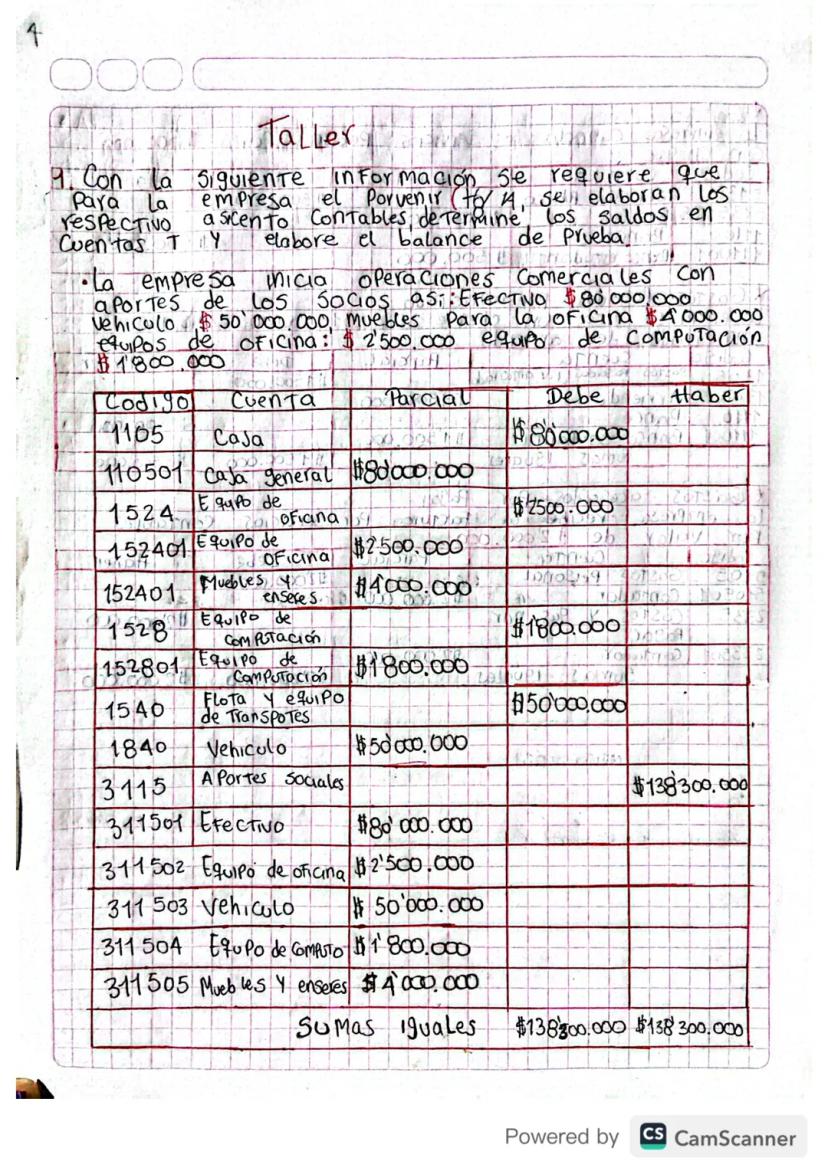 4
Taller
1. Con la siguiente información se requiere que
para la empresa el Porvenir Ltda, se elaboran los
respectivo asiento contables, determine los saldos en
cuentas T y elabore el balance de prueba
• La empresa inicia operaciones comerciales con
aportes de los socios así: Efectivo $80'000.000
vehiculo $50'000.000, muebles para la oficina $4'000.000
equipos de oficina: $2'500.000 equipo de computación
$1'800.000
Codigo Cuenta Parcial Debe Haber
1105 Caja $80'000.000
110501 Caja general $80'000.000
1524 Equipo de oficina $2'500.000
152401 Equipo de oficina $2'500.000
152401 Muebles y enseres $4'000.000
1528 Equipo de computación $1'800.000
152801 Equipo de computación $1'800.000
1540 Flota y equipo de transpotes $50'000.000
1840 Vehiculo $50'000.000
3115 Aportes sociales $138'300.000
311501 Efectivo $80'000.000
311502 Equipo de oficina $2'500.000
311503 Vehiculo $50'000.000
311504 Equpo de computo $1'800.000
311505 Muebles y enseres $4'000.000
Sumas iguales $138'300.000 $138'300.000
Powered by CS CamScanner